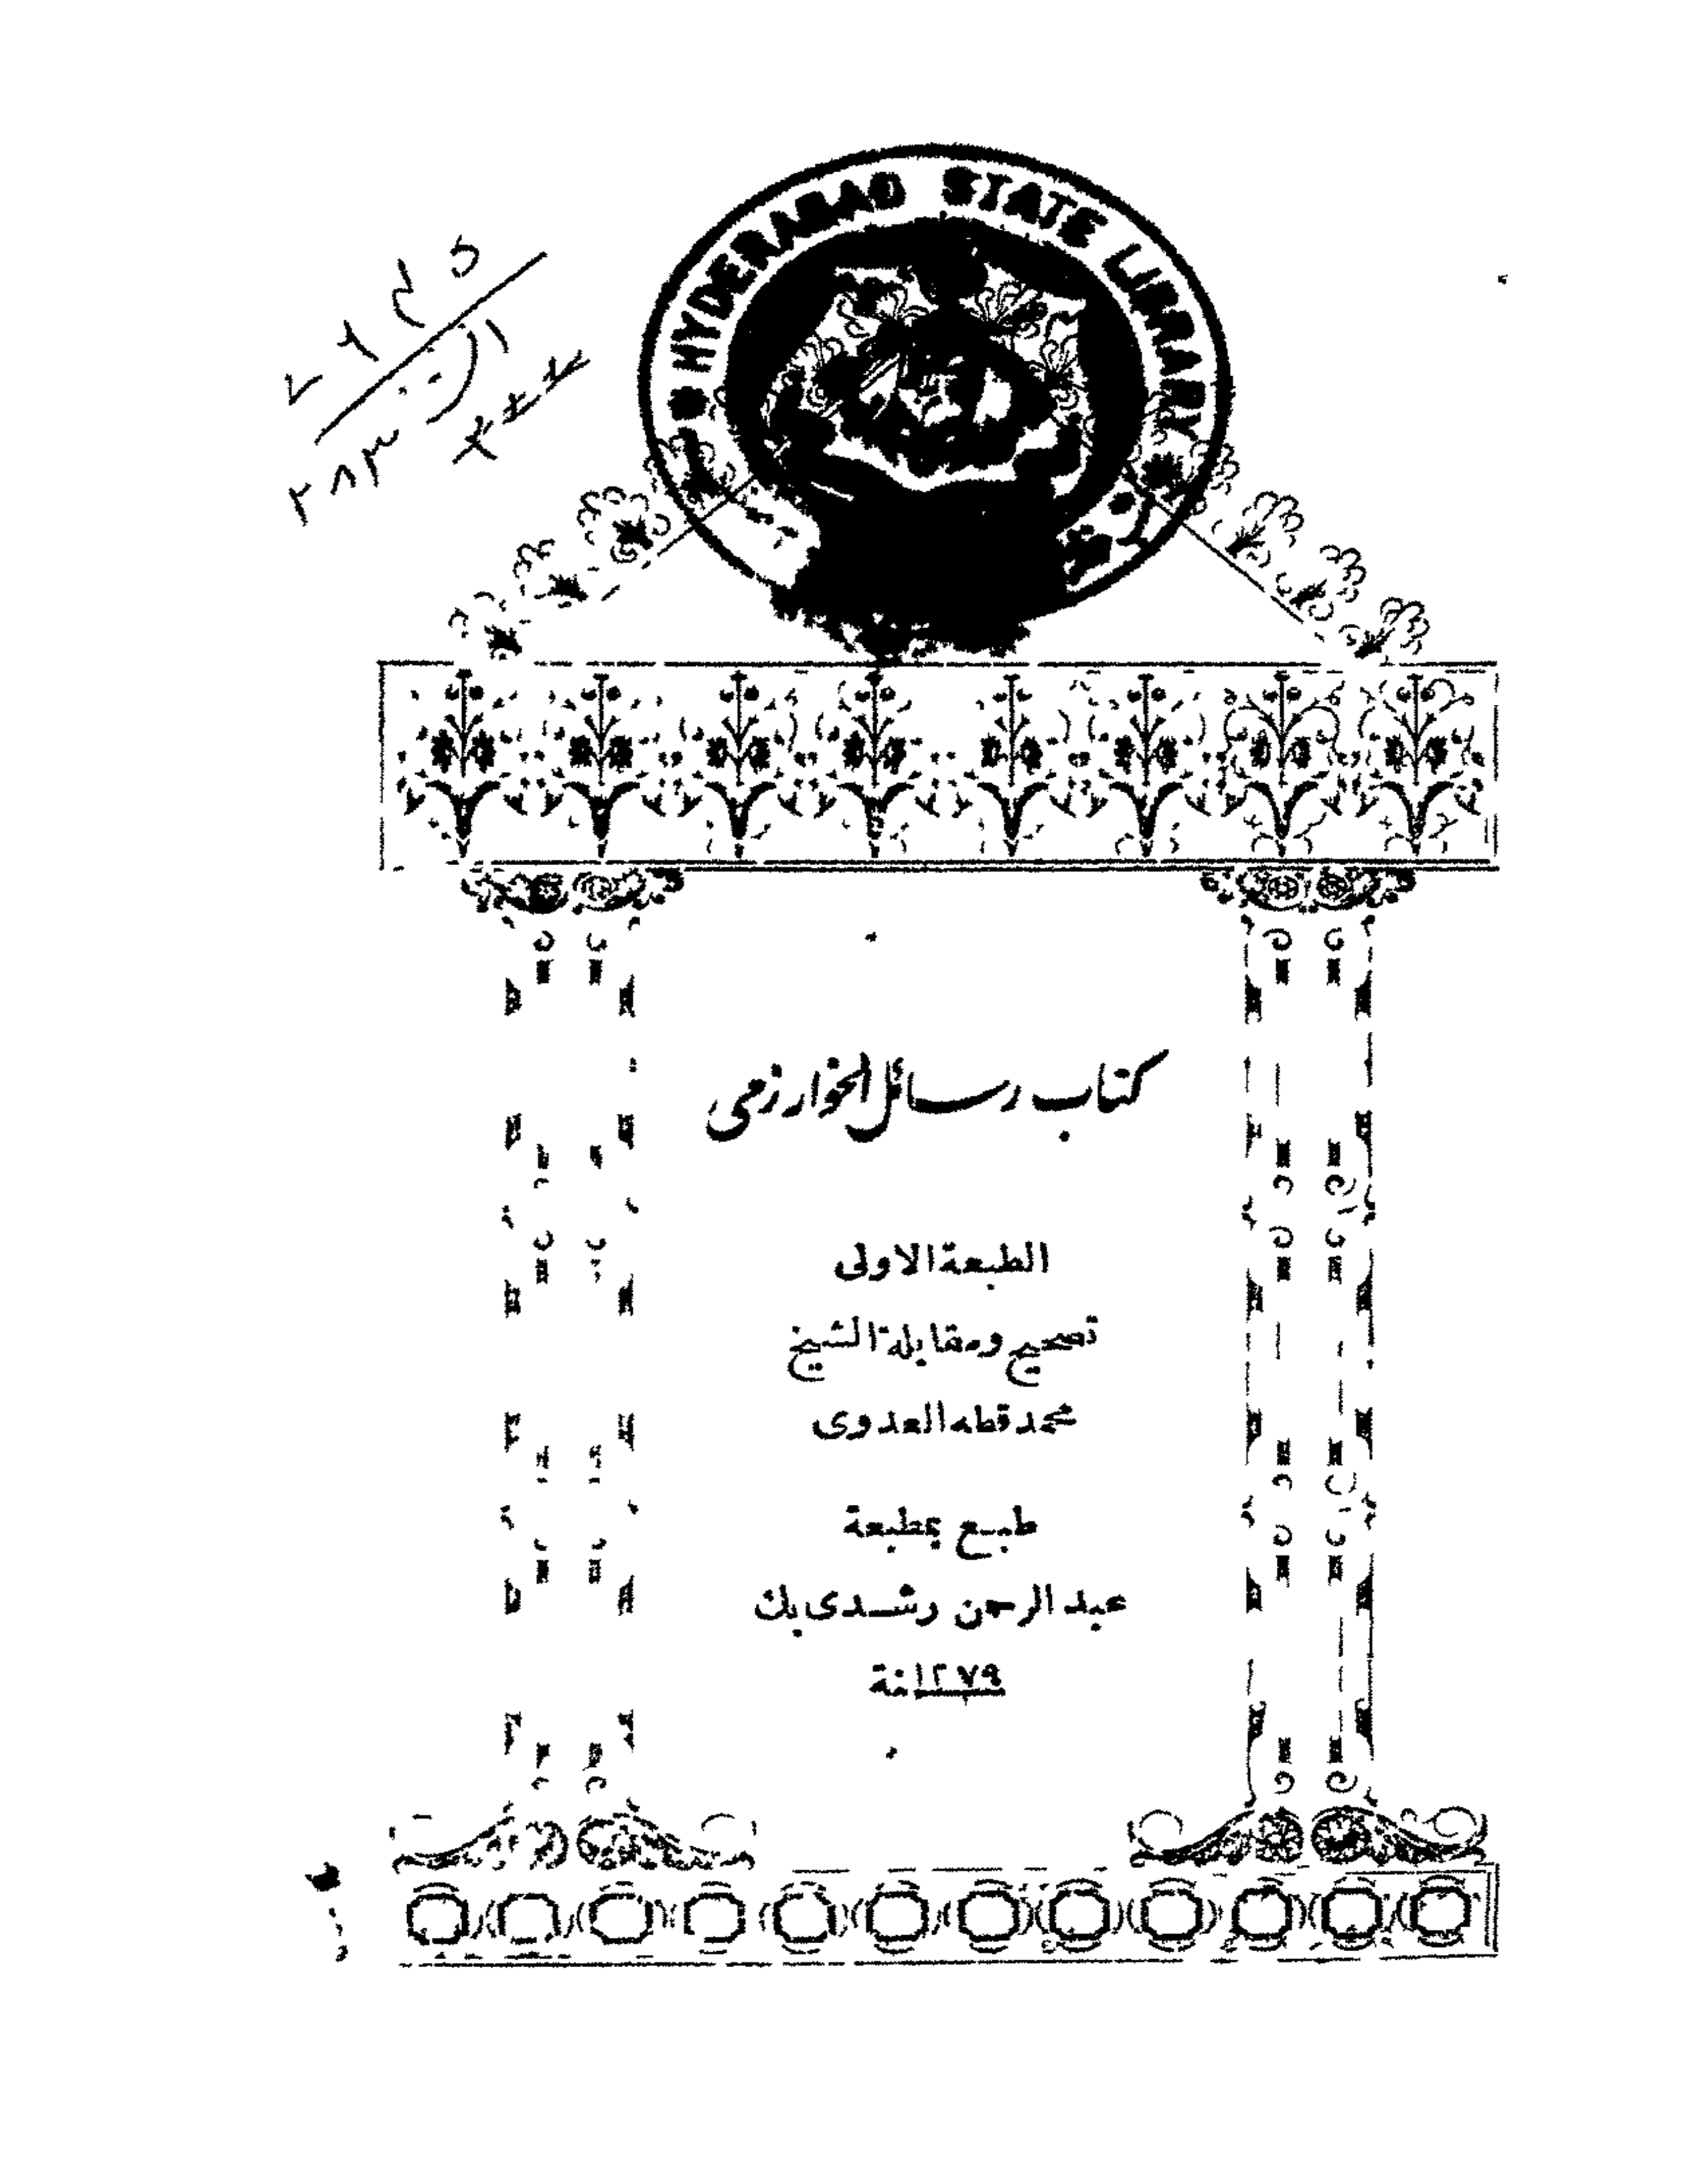 HYDERABAD STATE LIBRARY
كتاب رسائل الخوارزمى
الطبعة الاولى
تصحيح ومقابلة الشيخ
محمد قطه العدوى
طبع بمطبعة
عبد الرحمن رشدى بك
١٢٧٩نة